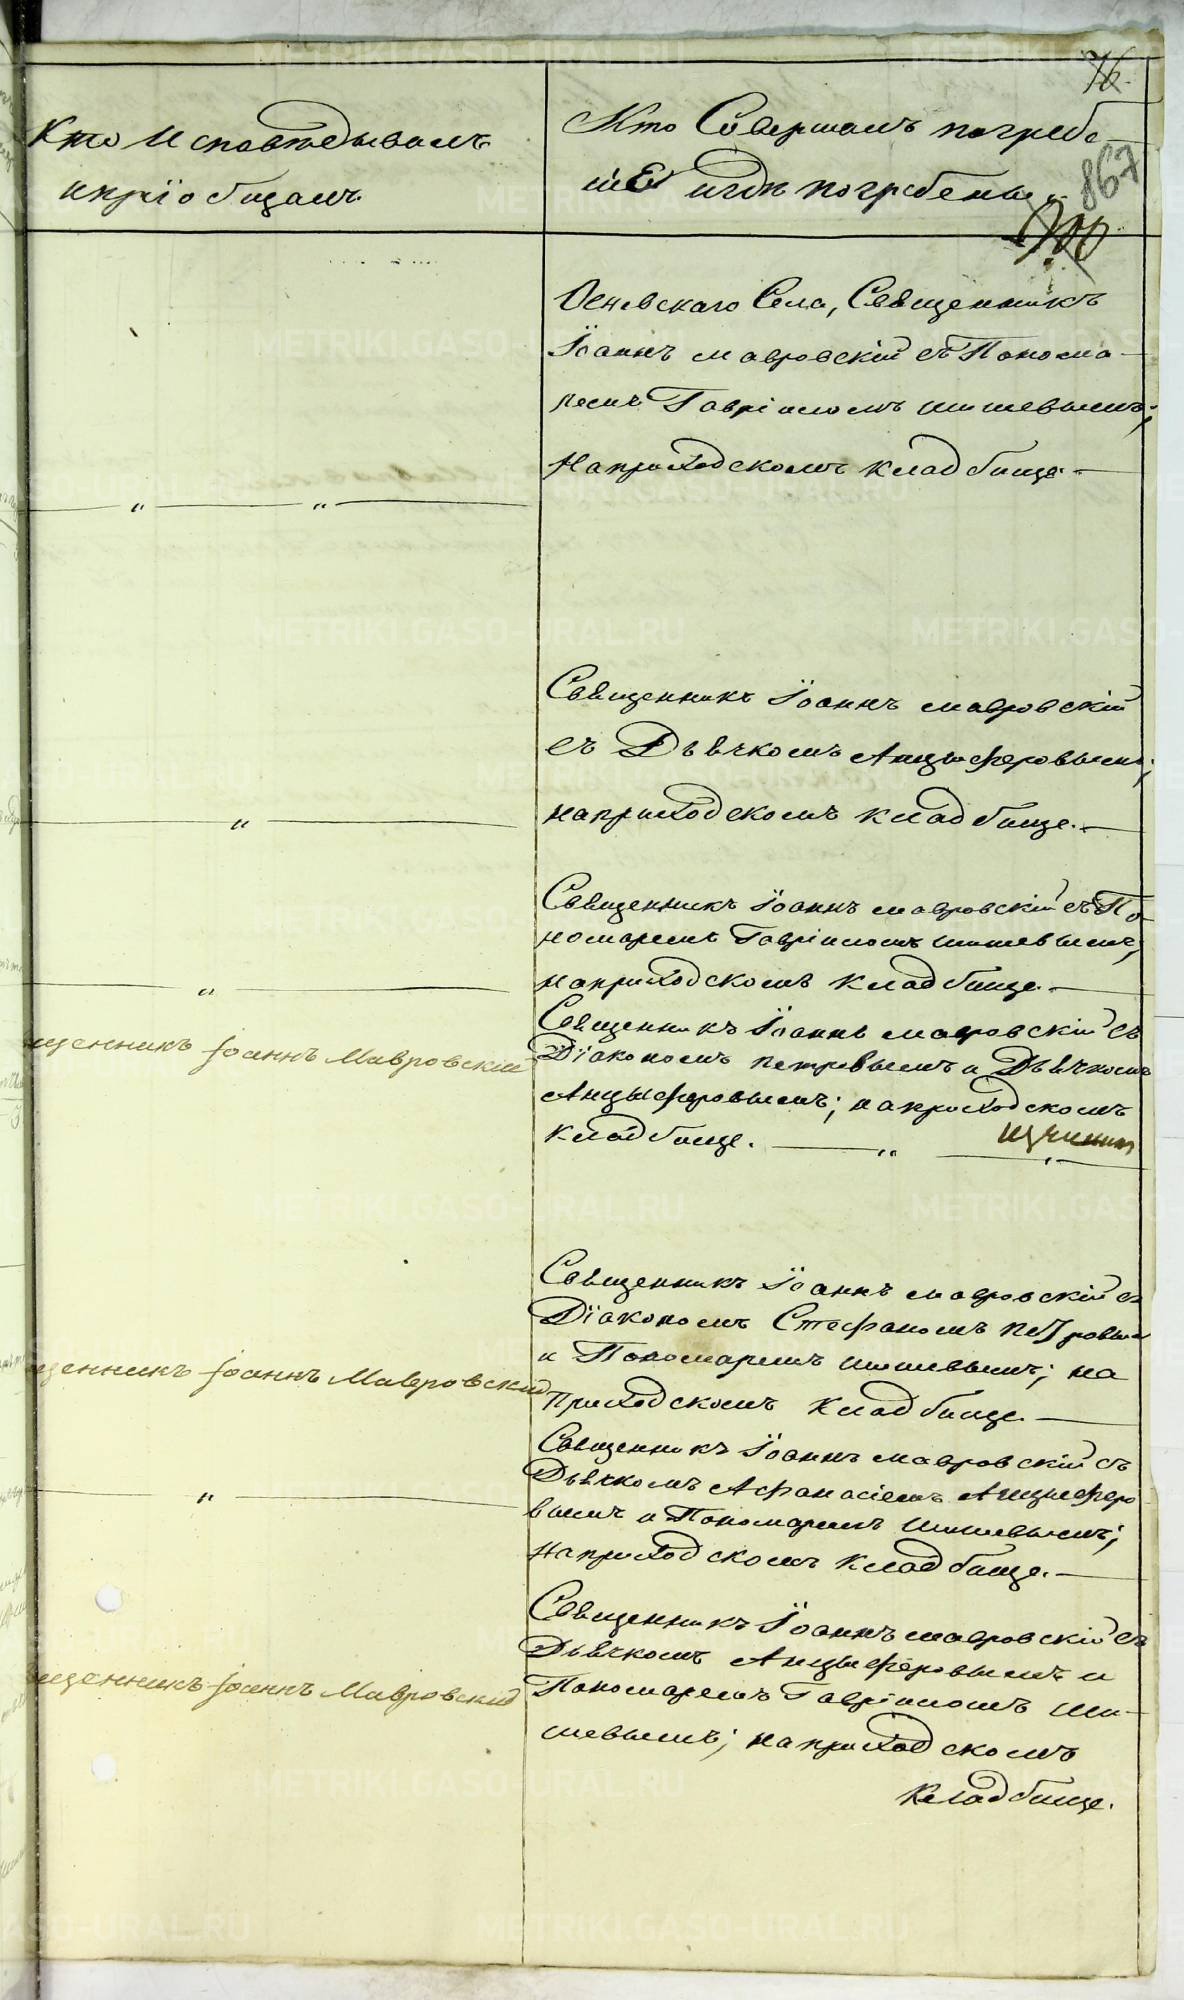 76.
Кто Исповѣдывалъ
и пріобщалъ.
Кто Совершалъ погребе-
ніе и гдѣ погребены.
867
Осневскаго Села, Священникъ
Іоаннъ Мавровскій съ Понома-
ремъ Гавріиломъ Шишевымъ;
на приходскомъ кладбище.
Священникъ Іоаннъ Мавровскій
съ Дьячкомъ Анцыферовымъ;
на приходскомъ кладбище.
Священникъ Іоаннъ Мавровскій съ По-
номаремъ Гавріиломъ Шишевымъ;
на приходскомъ кладбище.
щенникъ Іоаннъ Мавровскій
Священникъ Іоаннъ Мавровскій съ
Діакономъ Петровымъ и Дьячкомъ
Анцыферовымъ; на приходскомъ
кладбище.
Священникъ Іоаннъ Мавровскій съ
Діакономъ Стефаномъ Петровым
и Пономаремъ Шишевымъ; на
приходскомъ кладбище.
щенникъ Іоаннъ Мавровский
Священникъ Іоаннъ Мавровскій съ
Дьячкомъ Афанасіемъ Анцыферо
вымъ и Пономаремъ Шишевымъ;
на приходскомъ кладбище.
Священникъ Іоаннъ Мавровскій съ
Дьячкомъ Анцыферовымъ и
Пономаремъ Гавріиломъ Ши-
шевымъ; на приходскомъ
кладбище.
щенникъ Іоаннъ Мавровский
METRIKI.GASO-URAL.RU